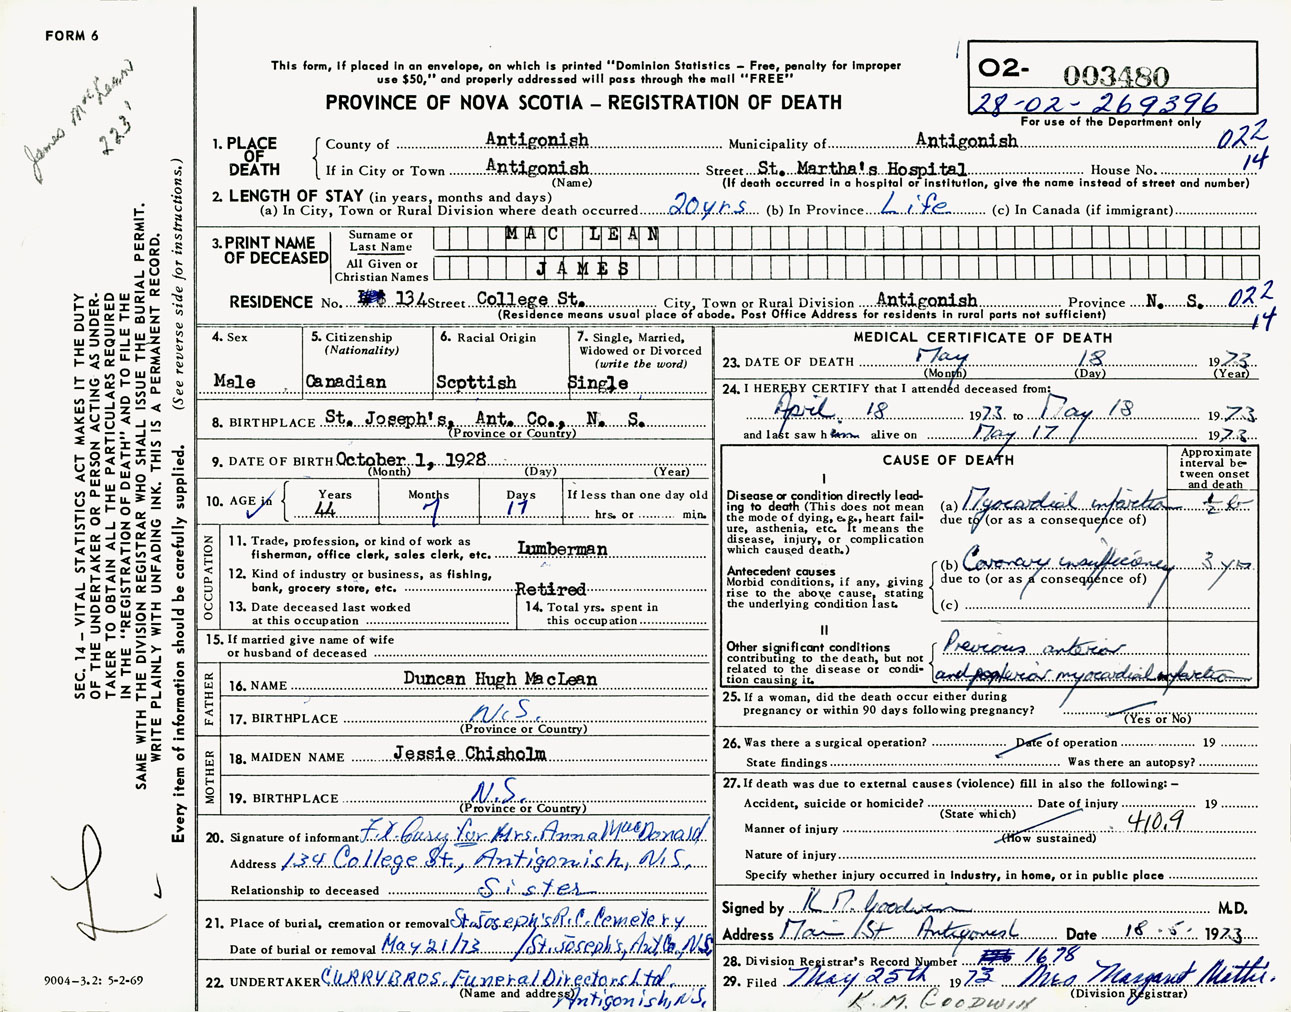 FORM 6
James McLean
223'
This form, if placed in an envelope, on which is printed "Dominion Statistics – Free, penalty for improper
use $50," and properly addressed will pass through the mail "FREE"
PROVINCE OF NOVA SCOTIA – REGISTRATION OF DEATH
O2- 003480
28-02-269396
For use of the Department only
SEC. 14 – VITAL STATISTICS ACT MAKES IT THE DUTY
OF THE UNDERTAKER OR PERSON ACTING AS UNDER-
TAKER TO OBTAIN ALL THE PARTICULARS REQUIRED
IN THE "REGISTRATION OF DEATH" AND TO FILE THE
SAME WITH THE DIVISION REGISTRAR WHO SHALL ISSUE THE BURIAL PERMIT.
WRITE PLAINLY WITH UNFADING INK. THIS IS A PERMANENT RECORD.
Every item of information should be carefully supplied. (See reverse side for instructions.)
9004-3.2: 5-2-69
1. PLACE OF DEATH
County of Antigonish Municipality of Antigonish 022
If in City or Town Antigonish Street St. Martha's Hospital House No. 14
(Name) (If death occurred in a hospital or institution, give the name instead of street and number)
2. LENGTH OF STAY (in years, months and days)
(a) In City, Town or Rural Division where death occurred 20 yrs (b) In Province Life (c) In Canada (if immigrant)
3. PRINT NAME OF DECEASED
Surname or Last Name MAC LEAN
All Given or Christian Names JAMES
RESIDENCE No. 134 Street College St. City, Town or Rural Division Antigonish Province N. S. 022
(Residence means usual place of abode. Post Office Address for residents in rural parts not sufficient) 14
4. Sex
Male
5. Citizenship
(Nationality)
Canadian
6. Racial Origin
Scottish
7. Single, Married,
Widowed or Divorced
(write the word)
Single
8. BIRTHPLACE St. Joseph's, Ant. Co., N. S.
(Province or Country)
9. DATE OF BIRTH October 1, 1928
(Month) (Day) (Year)
10. AGE in
Years Months Days If less than one day old
44 7 17 hrs. or min.
OCCUPATION
11. Trade, profession, or kind of work as
fisherman, office clerk, sales clerk, etc. Lumberman
12. Kind of industry or business, as fishing,
bank, grocery store, etc. Retired
13. Date deceased last worked
at this occupation
14. Total yrs. spent in
this occupation
15. If married give name of wife
or husband of deceased
FATHER
16. NAME Duncan Hugh MacLean
17. BIRTHPLACE N.S.
(Province or Country)
MOTHER
18. MAIDEN NAME Jessie Chisholm
19. BIRTHPLACE N.S.
(Province or Country)
20. Signature of informant for Mrs. Anna MacDonald
Address 134 College St., Antigonish, N.S.
Relationship to deceased Sister
21. Place of burial, cremation or removal St. Joseph's R.C. Cemetery
Date of burial or removal May 21/73 /St. Joseph's, Ant. Co., N.S.
22. UNDERTAKER CURRY BROS. Funeral Directors Ltd.
(Name and address) Antigonish, N.S.
MEDICAL CERTIFICATE OF DEATH
23. DATE OF DEATH May 18 1973
(Month) (Day) (Year)
24. I HEREBY CERTIFY that I attended deceased from:
April 18 1973 to May 18 1973
and last saw him alive on May 17 1973
CAUSE OF DEATH
Approximate
interval be-
tween onset
and death
I
Disease or condition directly lead-
ing to death (This does not mean
the mode of dying, e.g., heart fail-
ure, asthenia, etc. It means the
disease, injury, or complication
which caused death.)
(a) Myocardial infarction ½ hr
due to (or as a consequence of)
Antecedent causes
Morbid conditions, if any, giving
rise to the above cause, stating
the underlying condition last.
(b) Coronary insufficiency 3 yrs
due to (or as a consequence of)
(c)
II
Other significant conditions
contributing to the death, but not
related to the disease or condi-
tion causing it.
Previous anterior
and posterior myocardial infarction
25. If a woman, did the death occur either during
pregnancy or within 90 days following pregnancy?
(Yes or No)
26. Was there a surgical operation? Date of operation 19
State findings Was there an autopsy?
27. If death was due to external causes (violence) fill in also the following: –
Accident, suicide or homicide? Date of injury 19
(State which)
Manner of injury 410.9
(How sustained)
Nature of injury
Specify whether injury occurred in industry, in home, or in public place
Signed by K M Goodwin M.D.
Address Main St Antigonish Date 18-5- 1973
28. Division Registrar's Record Number 1678
29. Filed May 25th 1973 Mrs Margaret
(Division Registrar)
K. M. GOODWIN